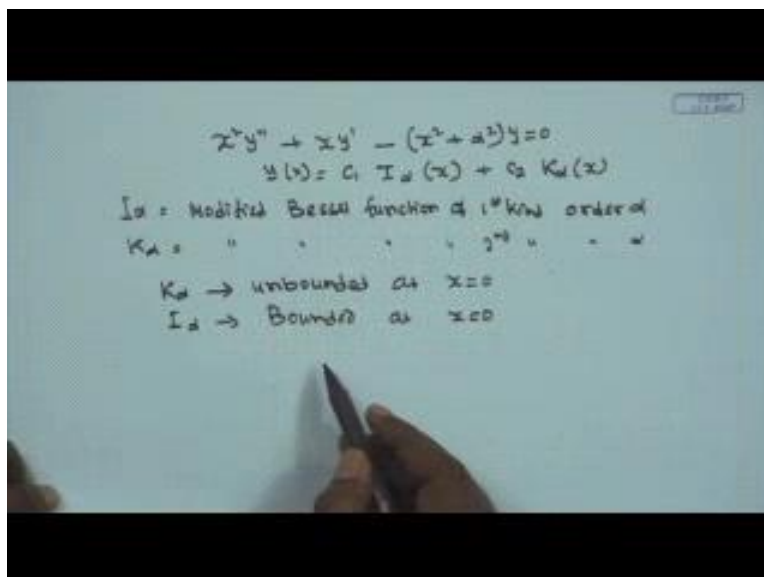 x²y" + xy' - (x² + α²)y = 0
y(x) = C₁ I_α(x) + C₂ K_α(x)
I_α = Modified Bessel function of 1st kind order α
K_α = " " " " 2nd " " α
K_α → unbounded at x=0
I_α → Bounded at x=0